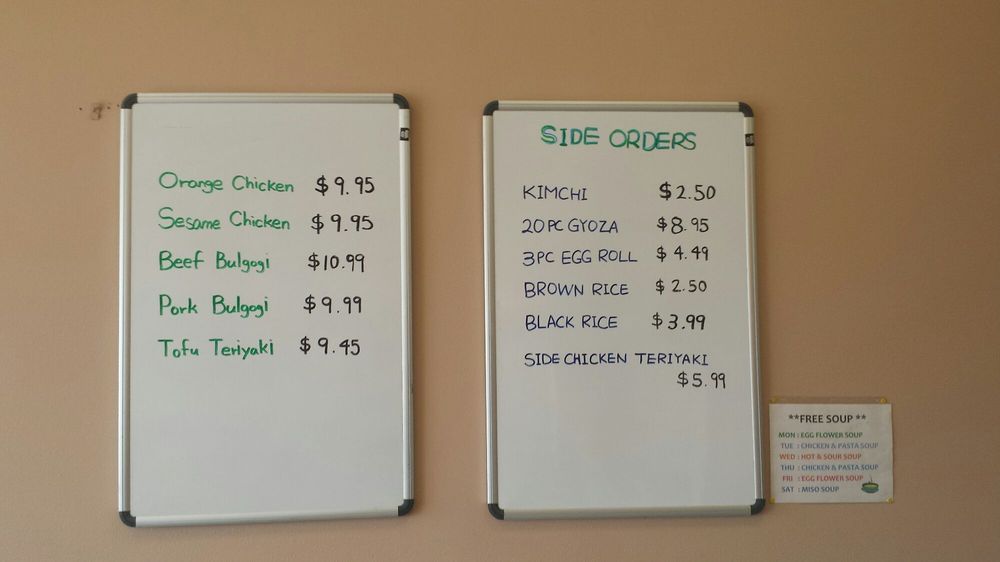 Orange Chicken $9.95
Sesame Chicken $9.95
Beef Bulgogi $10.99
Pork Bulgogi $9.99
Tofu Teriyaki $9.45
SIDE ORDERS
KIMCHI $2.50
20PC GYOZA $8.95
3PC EGG ROLL $4.49
BROWN RICE $2.50
BLACK RICE $3.99
SIDE CHICKEN TERIYAKI
$5.99
**FREE SOUP **
MON : EGG FLOWER SOUP
TUE : CHICKEN & PASTA SOUP
WED : HOT & SOUR SOUP
THU : CHICKEN & PASTA SOUP
FRI : EGG FLOWER SOUP
SAT : MISO SOUP